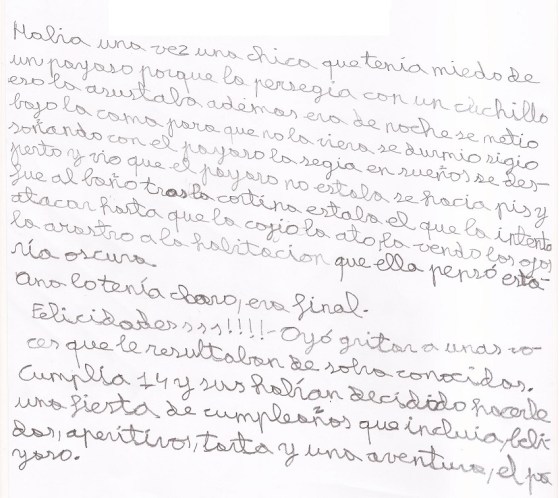 Habia una vez una chica que tenía miedo de
un payaso porque la persegia con un cuchillo
eso la asustaba además era de noche se metio
bajo la cama para que no la viera se durmio sigio
soñando con el payaso la segia en sueños se des-
perto y vio que el payaso no estaba se hacia pis y
fue al baño tras la cortina estaba el que la intentó
atacar hasta que la cojio la ato, la vendo los ojos
la arastro a la habitacion que ella pensó esta-
ría oscura.
Ana lo tenía claro, era final.
Felicidadesssss!!!!- Oyó gritar a unas vo-
ces que le resultaban de sobra conocidas.
Cumplía 14 y sus habían decidido hacerle
una fiesta de cumpleaños que incluia,
dos, aperitivos, tarta y una aventura, el pa
yaso.